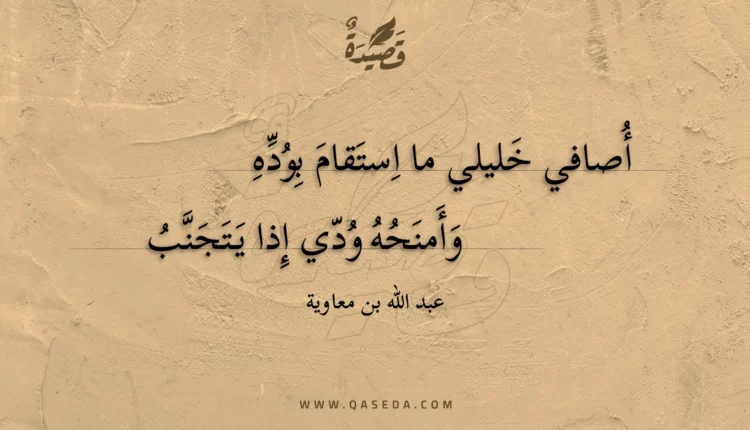 قَصِيْدَةٌ
أُصافي خَليلي ما اِستَقامَ بِوُدِّهِ
وَأَمنَحُهُ وُدّي إِذا يَتَجَنَّبُ
عبد الله بن معاوية
WWW.QASEDA.COM